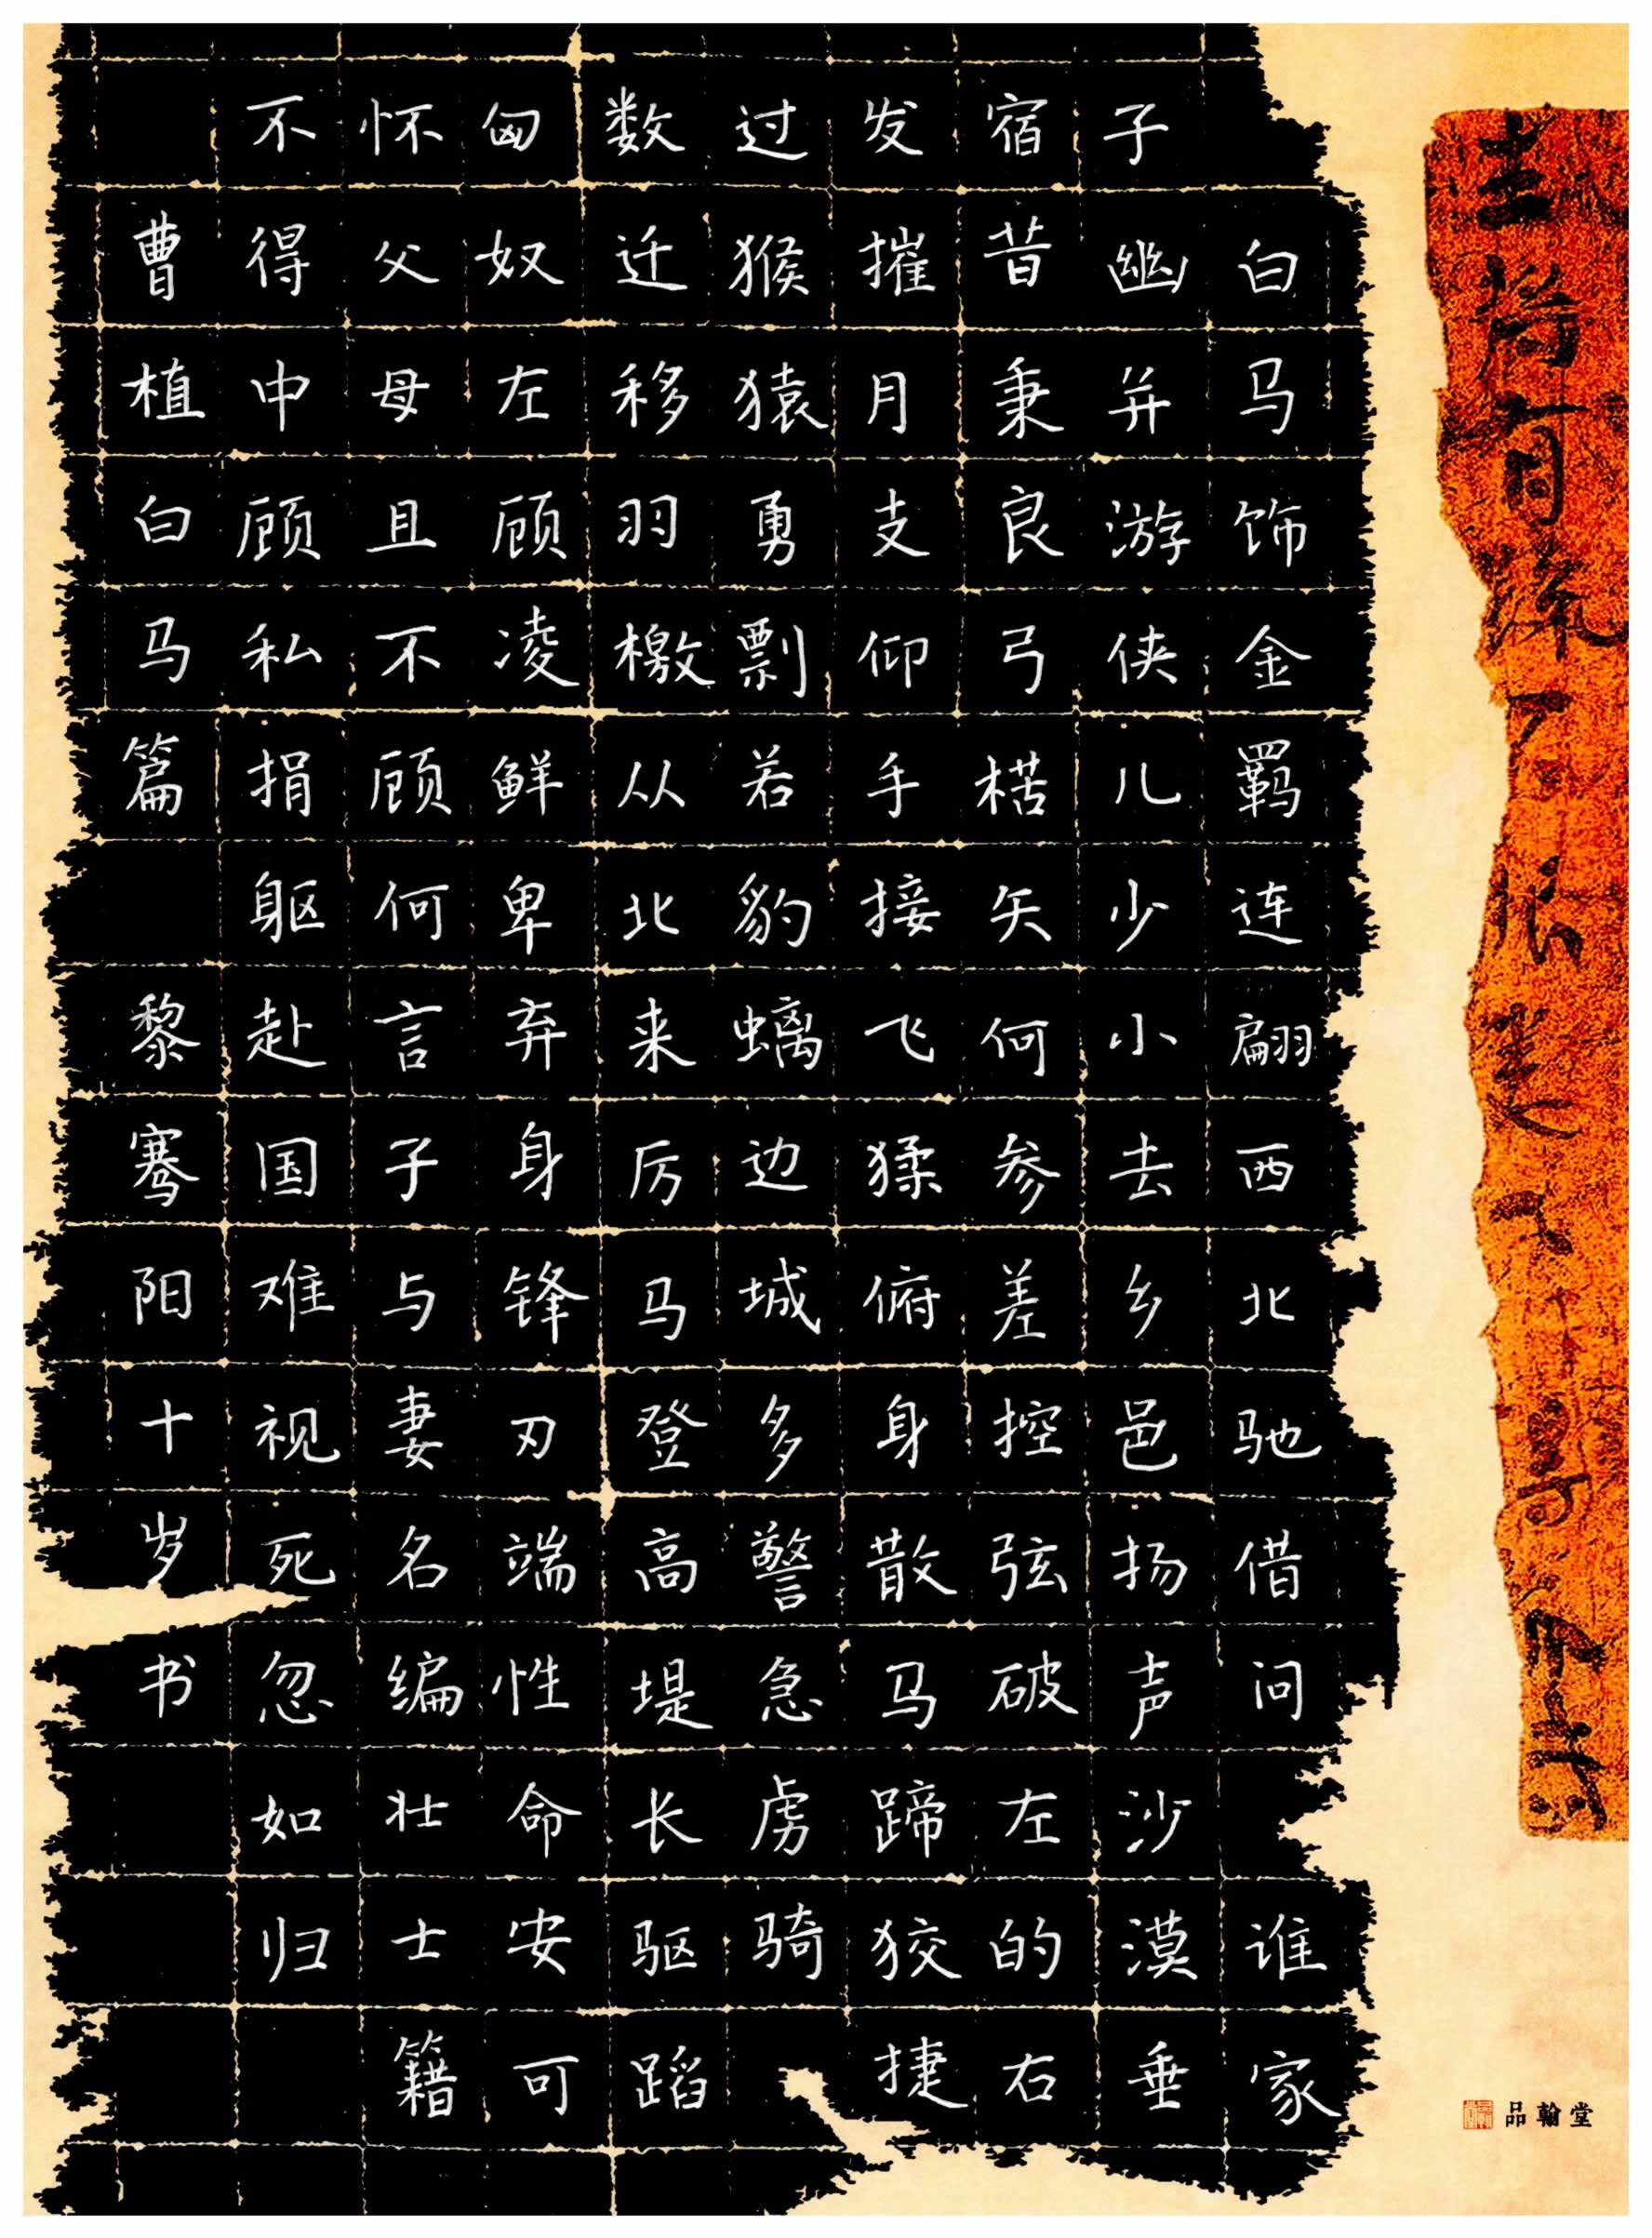 白马饰金羁连翩西北驰借问谁家
子幽并游侠儿少小去乡邑扬声沙漠垂
宿昔秉良弓楛矢何参差控弦破左的右
发摧月支仰手接飞猱俯身散马蹄狡捷
过猴猿勇剽若豹螭边城多警急虏骑
数迁移羽檄从北来厉马登高堤长驱蹈
匈奴左顾凌鲜卑弃身锋刃端性命安可
怀父母且不顾何言子与妻名编壮士籍
不得中顾私捐躯赴国难视死忽如归
曹植白马篇 黎骞阳十岁书
品翰堂